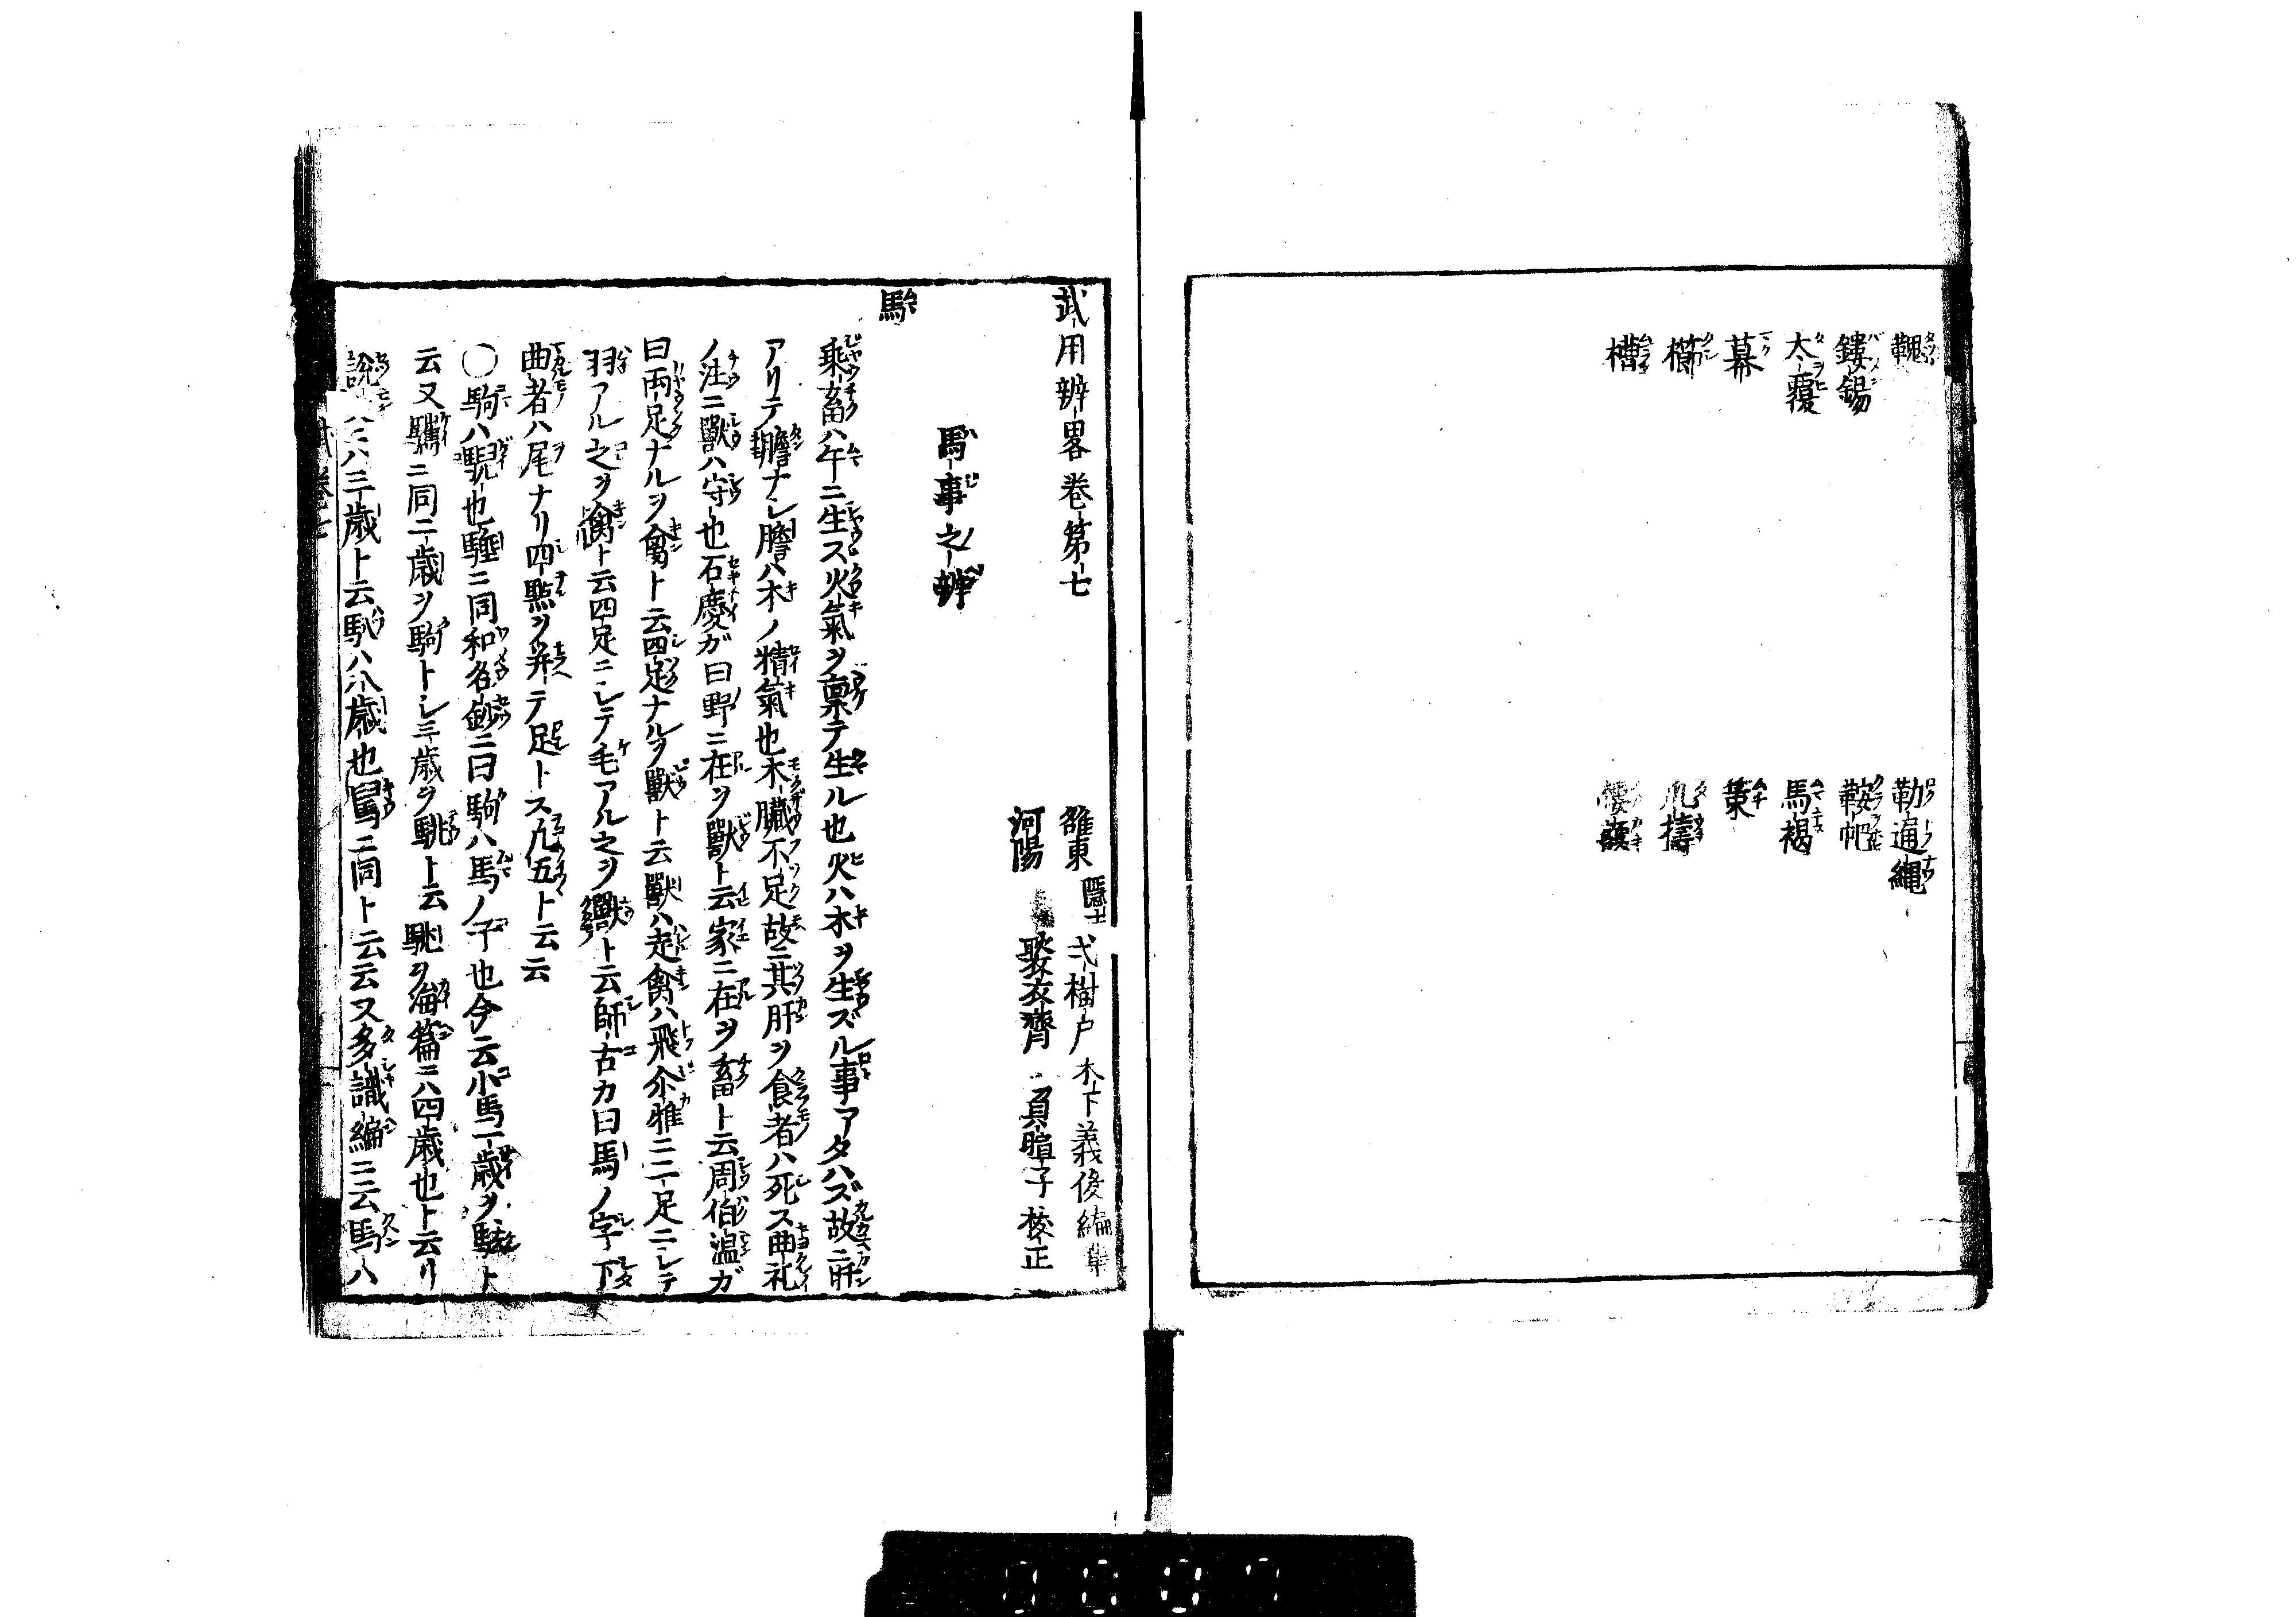 鞍
鏤錫
太覆
幕
櫛
槽
勒
遍繩
鞍帊
馬褐
策
武用辨畧卷第七
雒東隱士
弌樹戸木下義俊編集
河陽
褧衣齊負暄子校正
馬事之辨
馬
乘畜ハ午ニ生ス火氣ヲ稟テ生ル也火ハ木ヲ生ズル事アタハズ故ニ肝
アリテ膽ナシ膽ハ木ノ精氣也木臟不足故ニ其肝ヲ食者ハ死ス曲礼
ノ注ニ獸ハ守也石慶ガ曰野ニ在ヲ獸ト云家ニ在ヲ畜ト云周伯温ガ
曰両足ナルヲ禽ト云四足ナルヲ獸ト云獸ハ走禽ハ飛尒雅ニ二足ニシテ
羽アル之ヲ禽ト云四足ニシテ毛アル之ヲ獸ト云師古カ曰馬ノ字下
曲者ハ尾ナリ四點ヲ并テ足トス凡五ト云云
〇駒ハ駅也ニ同和名鈔ニ曰駒ハ馬ノ子也今云小馬一歳ヲト
云又ニ同二歳ヲ駒トシ三歳ヲ駣ト云駣ヲ海篇ニハ四歳也ト云リ
説ニハ三歳ト云馴ハ八歳也ニ同ト云云又多識編ニ云馬八